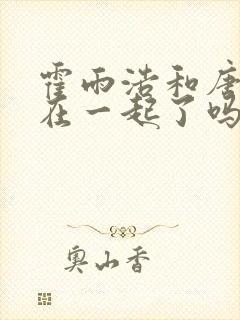 霍雨浩和唐
在一起了吗
奥山香